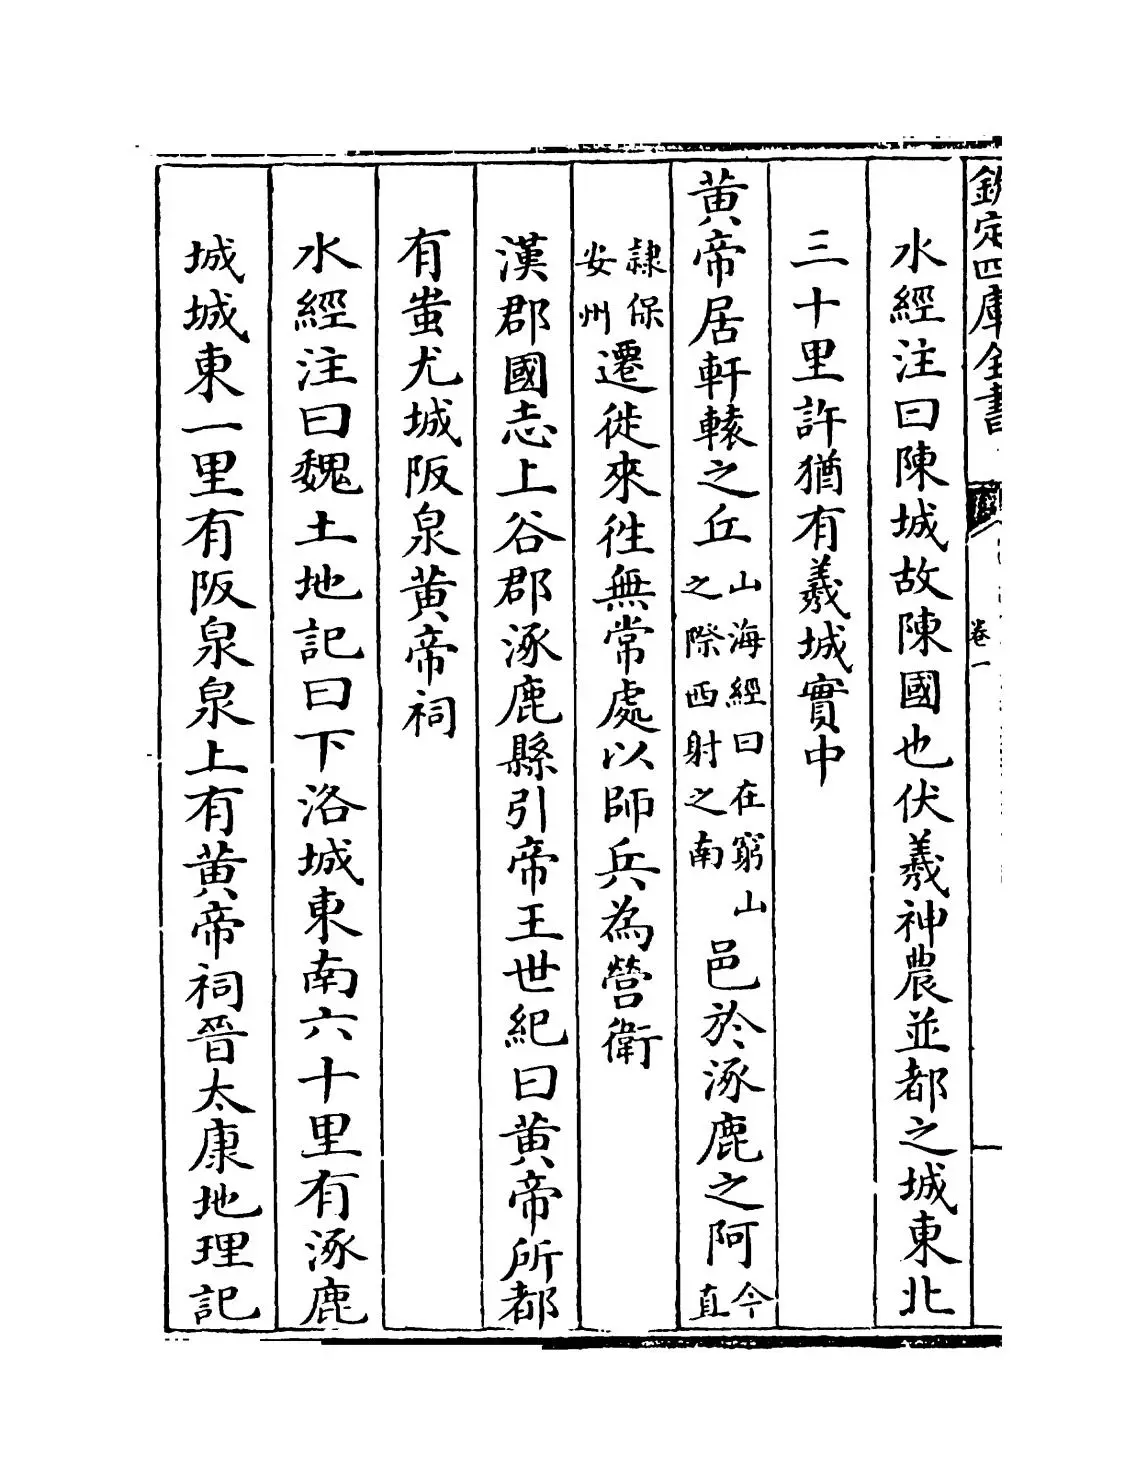 欽定四庫全書
卷一
水經注曰陳城故陳國也伏羲神農並都之城東北
三十里許猶有羲城實中
黄帝居軒轅之丘山海經曰在窮山之際西射之南邑於涿鹿之阿今直
隷保安州遷徙來徃無常處以師兵為營衛
漢郡國志上谷郡涿鹿縣引帝王世紀曰黄帝所都
有蚩尤城阪泉黄帝祠
水經注曰魏土地記曰下洛城東南六十里有涿鹿
城城東一里有阪泉泉上有黄帝祠晉太康地理記